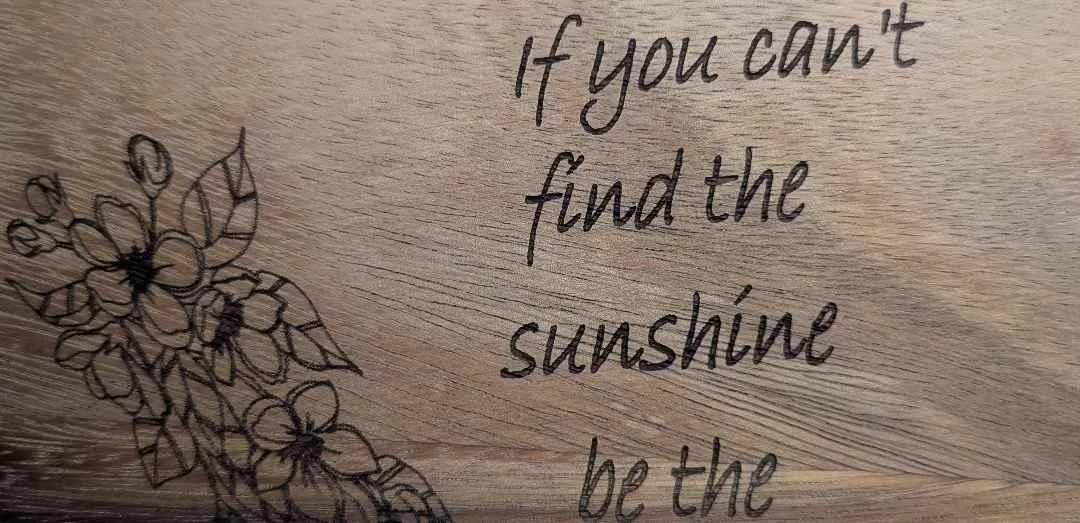 If you can't
find the
sunshine
be the